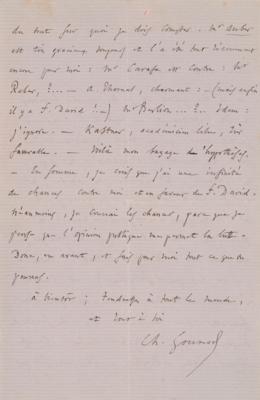 du tout sur quoi je dois compter. Mr Auber
est très gracieux toujours et l'a été tout récemment
encore pour moi : Mr Carafa est contre : Mr
Reber, ?... — A. Thomas, charmant : (mais enfin
il y a F. David !—) Mr Berlioz...?.. Idem :
j'ignore. — Kastner, académicien libre, très
favorable. — Voilà mon bagage d'hypothèses.
— En somme, je crois que j'ai une infinité
de chances contre moi et en faveur de F. David.
Néanmoins, je les chances, parce que je
pense que l'opinion publique me permet la lutte.
Donc, en avant, et fais pour moi tout ce que tu
pourras.
à bientôt ; Tendresses à tout le monde,
et tout à toi
Ch. Gounod